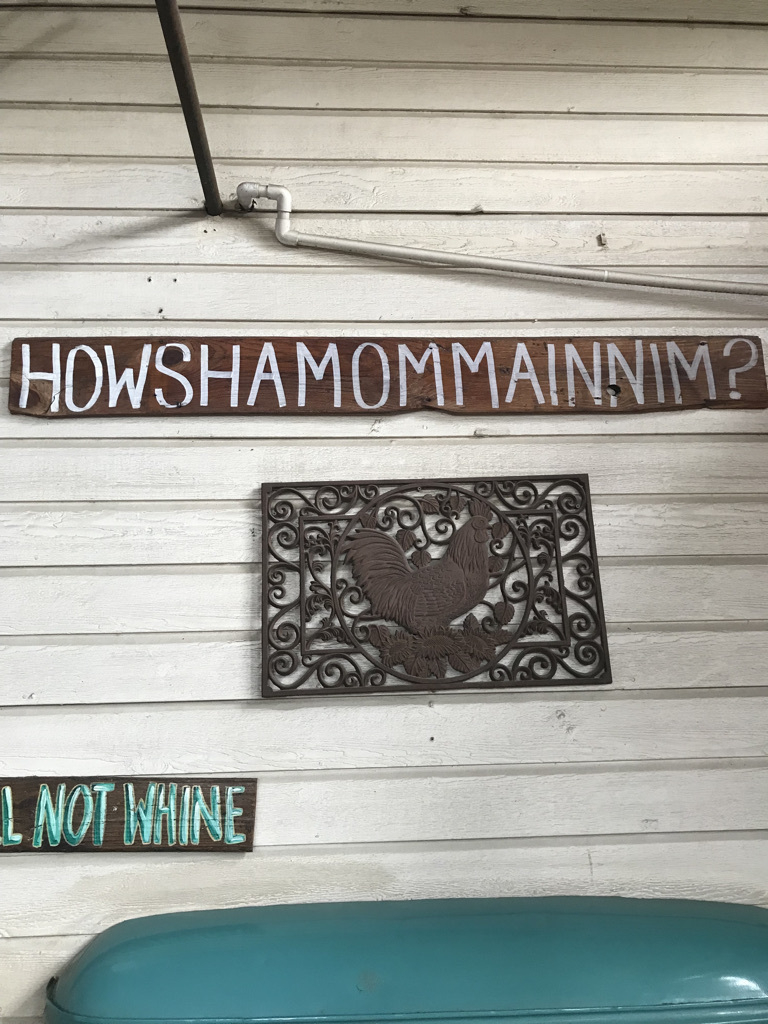 HOWSHAMOMMAINNIM?
L NOT WHINE